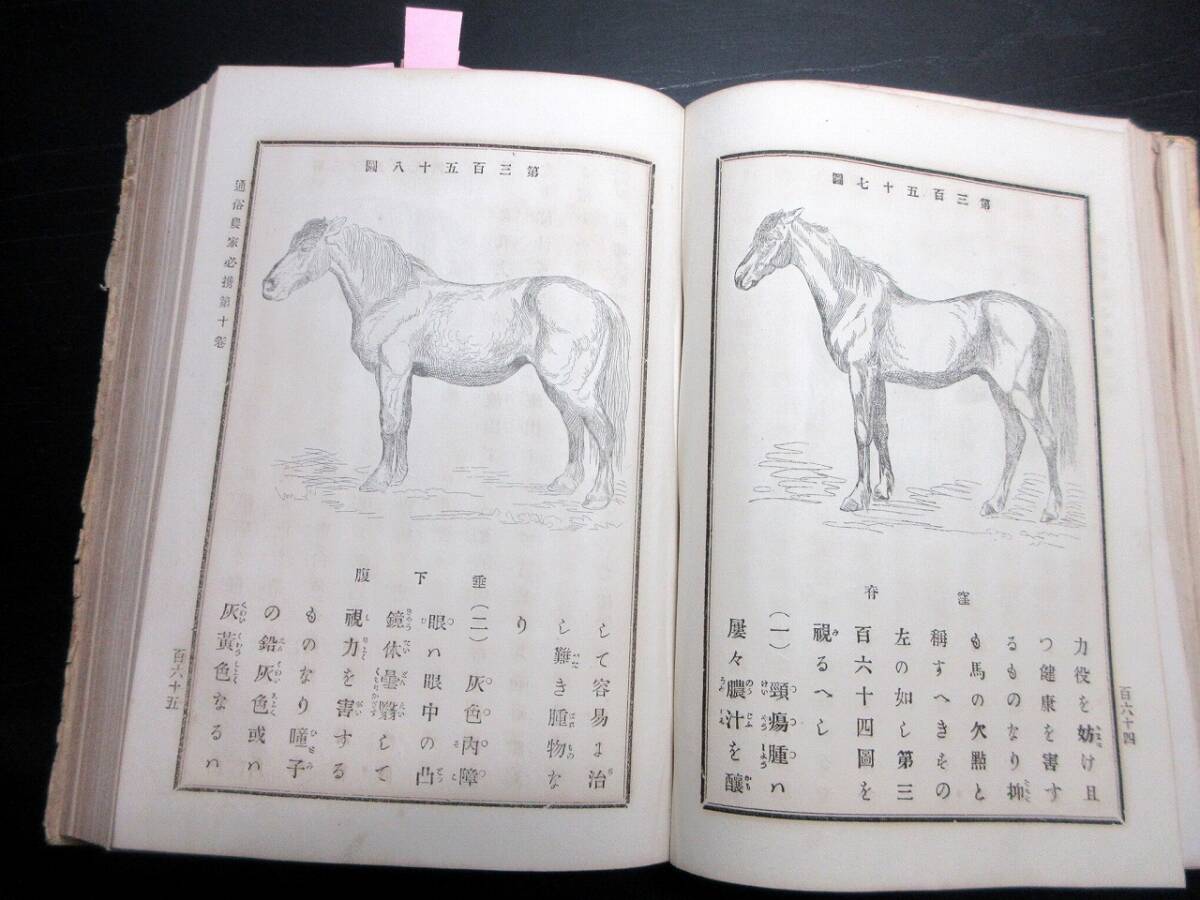 第三百五十七圖
窪脊
力役を妨け且
つ健康を害す
るものなり抑
も馬の欠點と
稱すへきもの
左の如し第三
百六十四圖を
視るへし
(一)頸瘍腫ハ
屢々膿汁を釀
百六十四
第三百五十八圖
垂下腹
して容易に治
し難き腫物な
り
(二)灰色内障
眼ハ眼中の凸
鏡体曇翳して
視力を害する
ものなり瞳子
の鉛灰色或ハ
灰黃色なるハ
通俗農家必携第十卷
百六十五